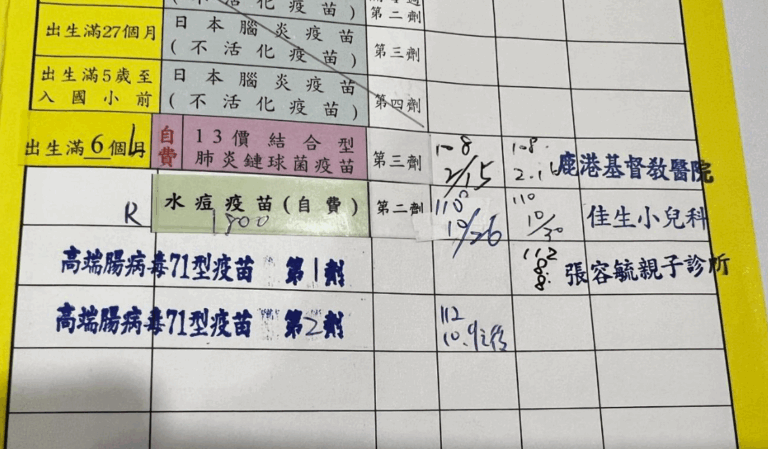 (不活化疫苗) 第二劑
出生滿27個月 日本腦炎疫苗
(不活化疫苗) 第三劑
出生滿5歲至
入國小前 日本腦炎疫苗
(不活化疫苗) 第四劑
出生滿6個月 自費 13價結合型
肺炎鏈球菌疫苗 第三劑 108
2/15 108.
2.16 鹿港基督教醫院
R 水痘疫苗(自費) 第二劑 110
10/26 110
10/30 佳生小兒科
1800
高端腸病毒71型疫苗 第1劑 112
8
8 張容毓親子診所
高端腸病毒71型疫苗 第2劑 112
10.9之後